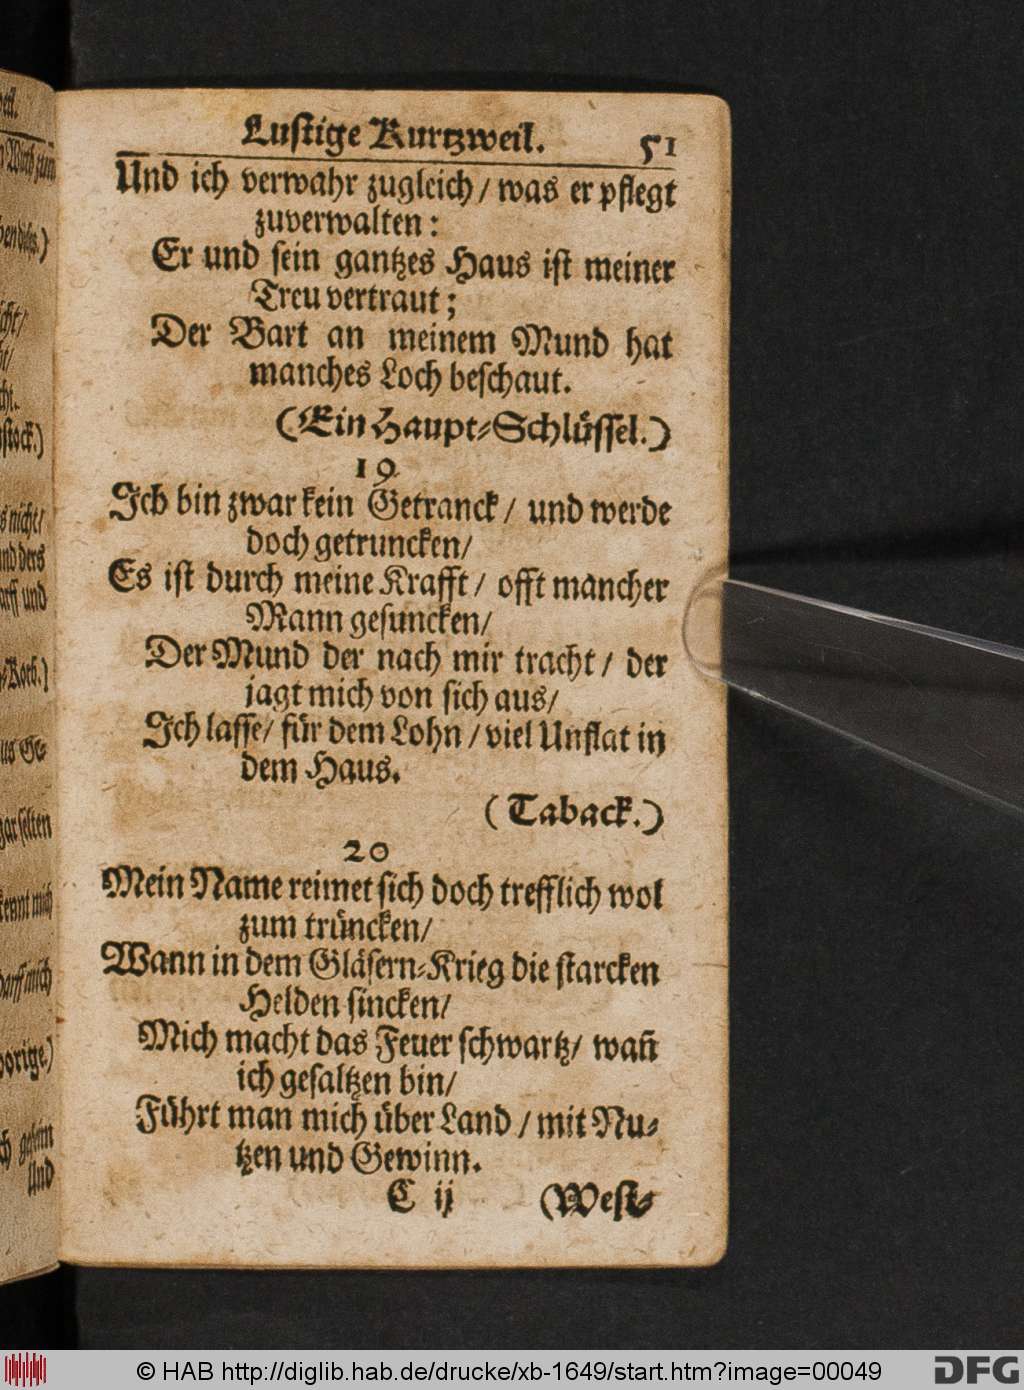 Lustige Kurtzweil. 51
Und ich verwahr zugleich / was er pflegt
zuverwalten:
Er und sein gantzes Haus ist meiner
Treu vertraut;
Der Bart an meinem Mund hat
manches Loch beschaut.
(Ein Haupt-Schlüssel.)
19
Ich bin zwar kein Getranck / und werde
doch getruncken/
Es ist durch meine Krafft / offt mancher
Mann gesuncken/
Der Mund der nach mir tracht / der
jagt mich von sich aus/
Ich lasse/ für dem Lohn / viel Unflat in
dem Haus.
(Taback.)
20
Mein Name reimet sich doch trefflich wol
zum trüncken/
Wann in dem Gläsern-Krieg die starcken
Helden sincken/
Mich macht das Feuer schwartz/ wañ
ich gesaltzen bin/
Führt man mich über Land / mit Nu-
tzen und Gewinn.
C ij (West-
© HAB http://diglib.hab.de/drucke/xb-1649/start.htm?image=00049
DFG